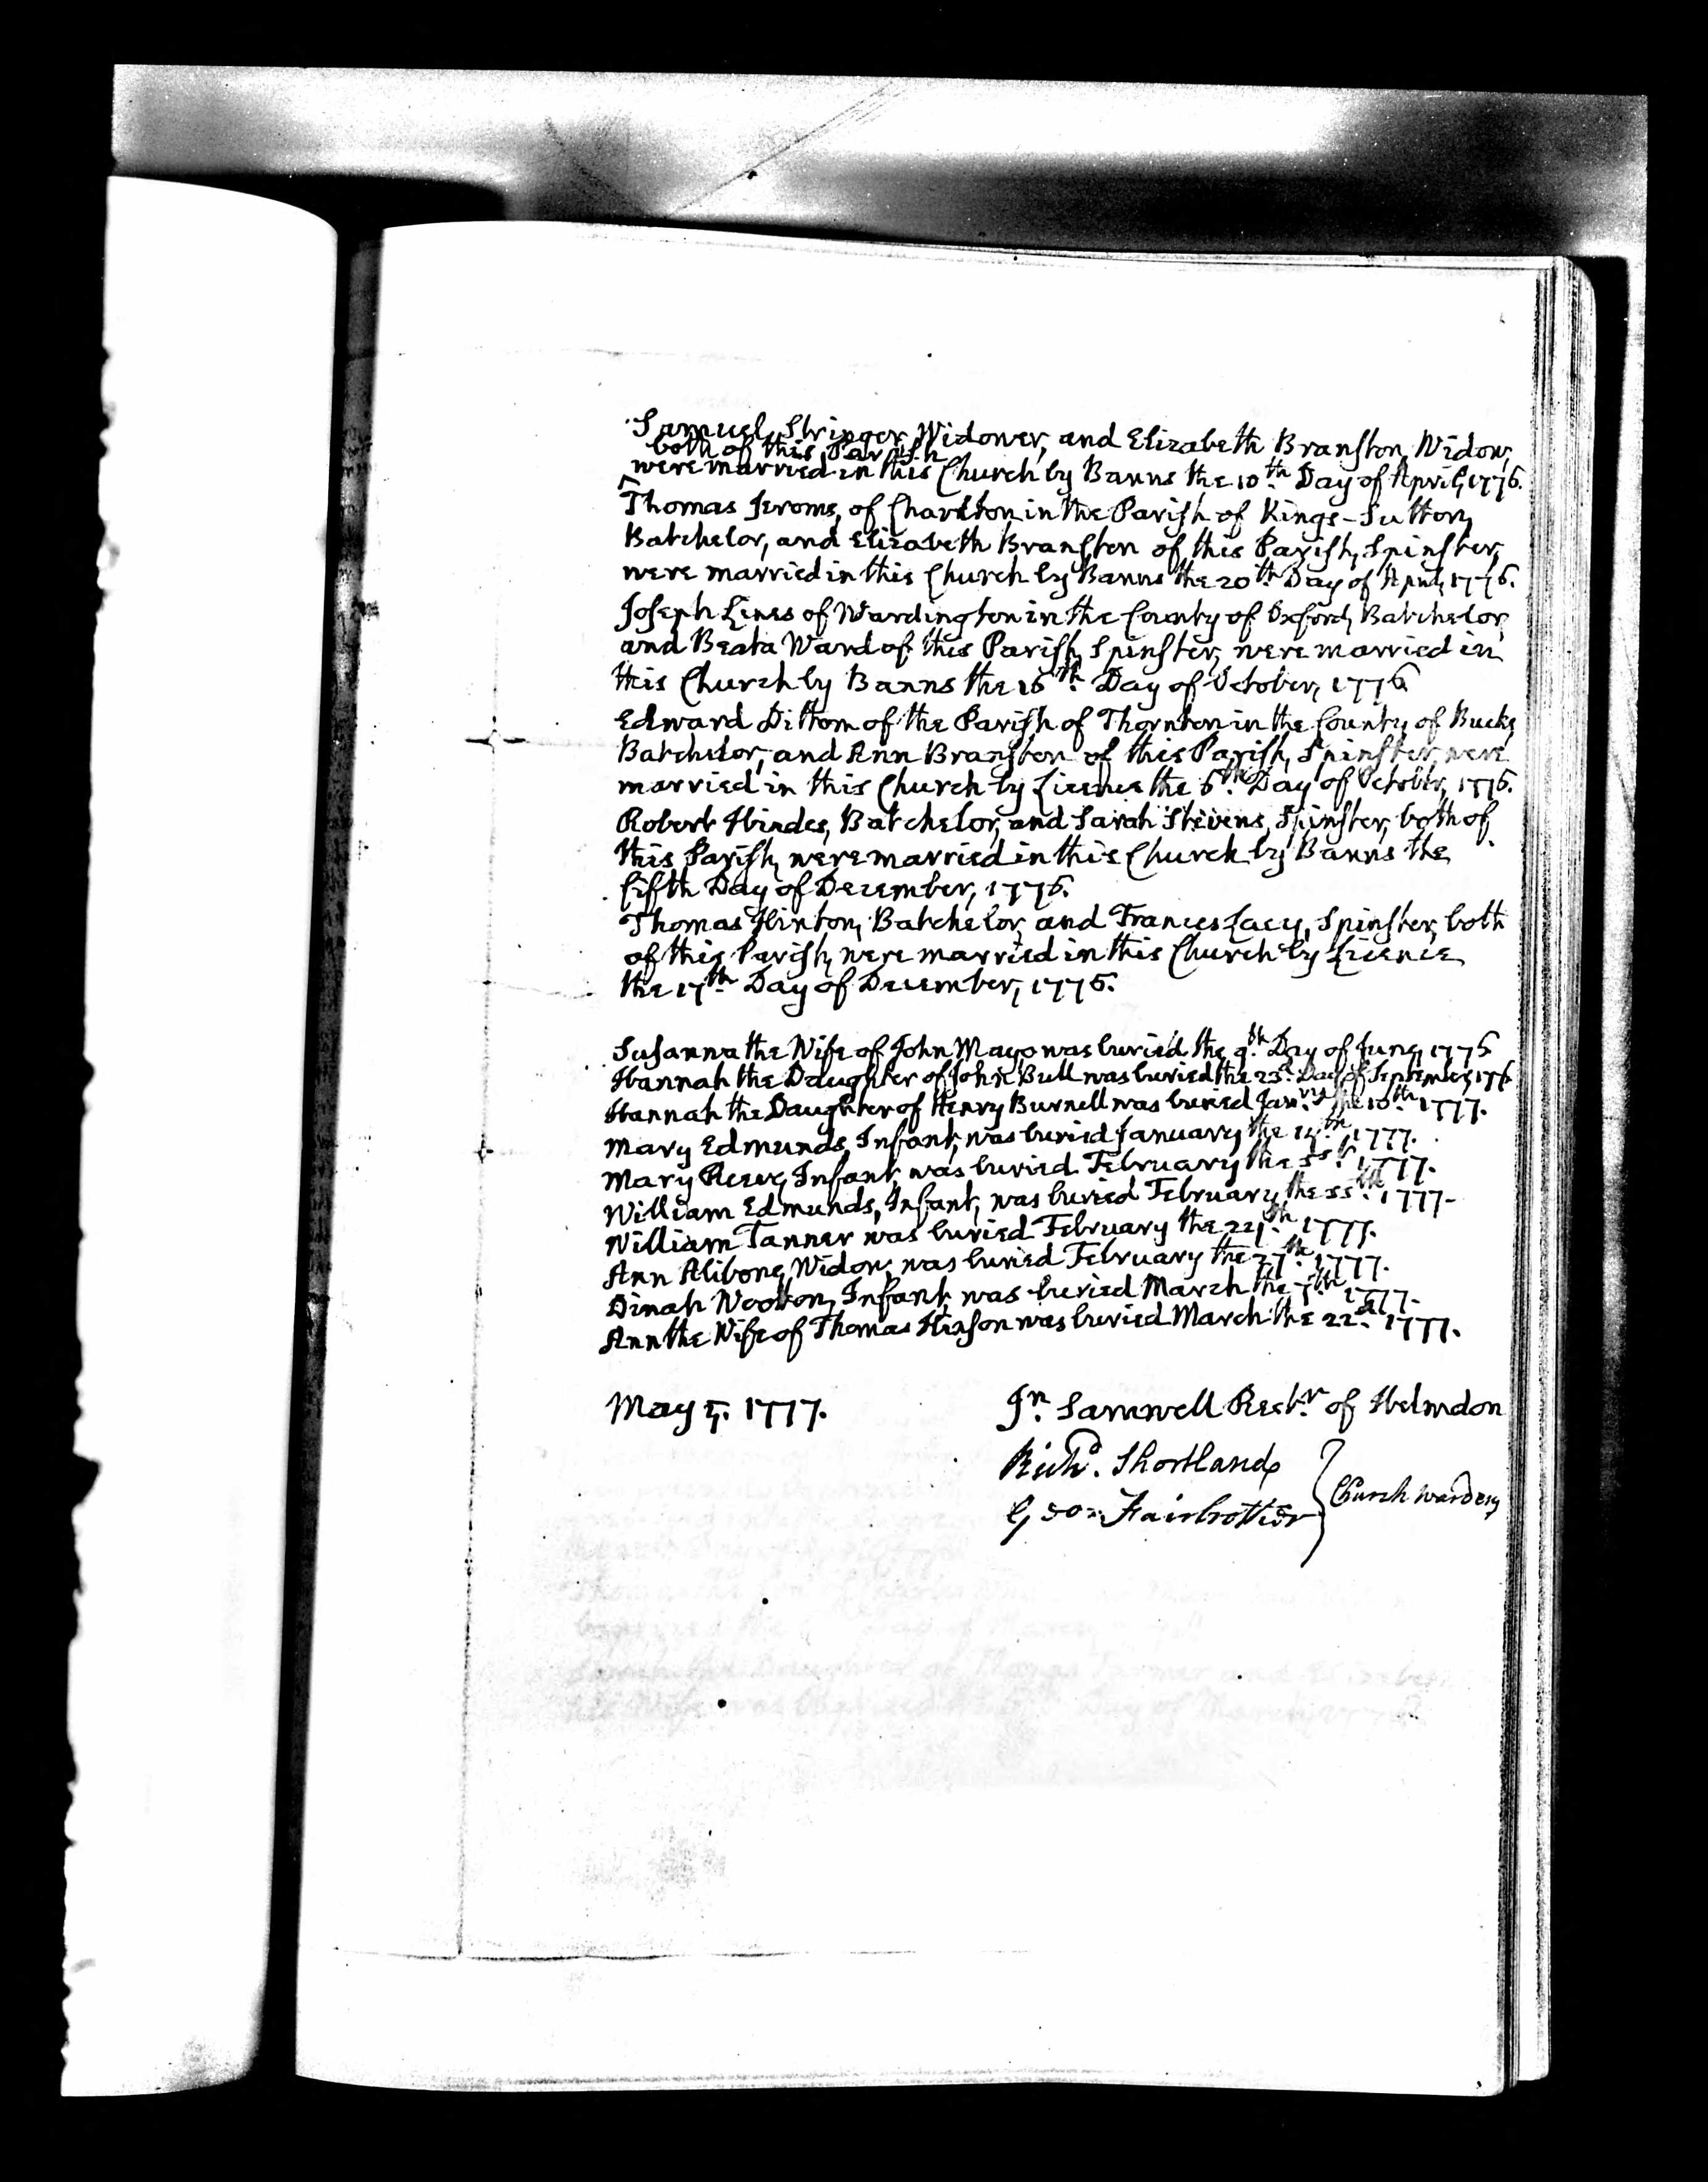 Samuel Stringer Widower, and Elizabeth Branston Widow,
both of this Parish
^were married in this Church by Banns the 10th Day of April, 1776.
Thomas Jerome, of Charlton in the Parish of Kings-Sutton,
Batchelor, and Elizabeth Branston of this Parish, Spinster,
were married in this Church by Banns the 20th Day of April, 1776.
Joseph Lines of Wardington in the County of Oxford, Batchelor,
and Beata Ward of this Parish, Spinster, were married in
this Church by Banns the 16th Day of October, 1776
Edward Dittom of the Parish of Thornton in the County of Bucks,
Batchelor, and Ann Branston of this Parish, Spinster, were
married in this Church by Licence the 6th Day of October, 1776.
Robert Hindes, Batchelor, and Sarah Stevens, Spinster, both of
this Parish, were married in this Church by Banns the
fifth Day of December, 1776.
Thomas Hinton, Batchelor, and Frances Lacy, Spinster, both
of this Parish, were married in this Church by Licence
the 17th Day of December, 1776.
Susanna the Wife of John Mayo was buried the 9th Day of June, 1776
Hannah the Daughter of John Bull was buried the 23d Day of September, 176
Hannah the Daughter of Henry Burnell was buried Janry the 10th 1777.
Mary Edmunds, Infant, was buried January the 14th, 1777.
Mary Reeve, Infant, was buried February the 1777.
William Edmunds, Infant, was buried February the 1777.
William Tanner was buried February the 1777.
Ann Alibone, Widow, was buried February the 27th 1777.
Dinah Wootton, Infant, was buried March the 7th 1777.
Ann the Wife of Thomas Hixson was buried March the 22d 1777.
May 5. 1777.
Jn. Samwell Rectr. of Helmdon
Richd. Shortland
Church wardens
Geo: Fairbrother